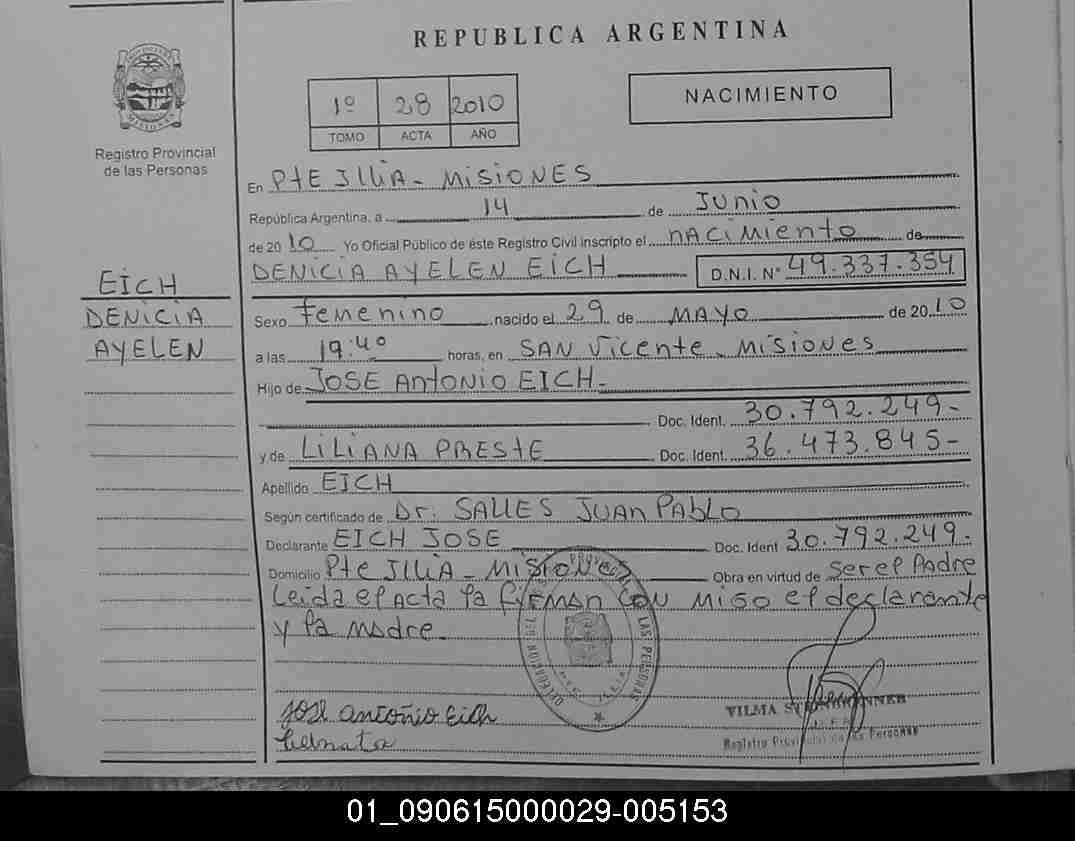 REPUBLICA ARGENTINA
PROVINCIA DE MISIONES
Registro Provincial
de las Personas
1º 28 2010
TOMO ACTA AÑO
NACIMIENTO
EICH
DENICIA
AYELEN
En PtE ILLIA - MISIONES
República Argentina, a 14 de Junio
de 2010 Yo Oficial Público de éste Registro Civil inscripto el nACiMiento de
DENICIA AYELEN EICH D.N.I. Nº 49.337.354
Sexo Femenino nacido el 29 de MAYO de 2010
a las 19:40 horas, en SAN Vicente - MISIONES
Hijo de JOSE AntONIO EICH-
Doc. Ident. 30.792.249-
y de LILIANA PRESTE Doc. Ident. 36.473.845-
Apellido EICH
Según certificado de Dr: SALLES JUAN PAblO
Declarante EICH JOSE Doc. Ident 30.792.249-
Domicilio Pte ILLIA - MISIONES Obra en virtud de ser el Padre
Leida el Acta la firman con migo el declarante
y la madre.
DELEGACION DEL PROVINCIAL LAS PERSONAS
José Antonio Eich
VILMA
JEFA
Registro Provincial de las Personas
01_090615000029-005153